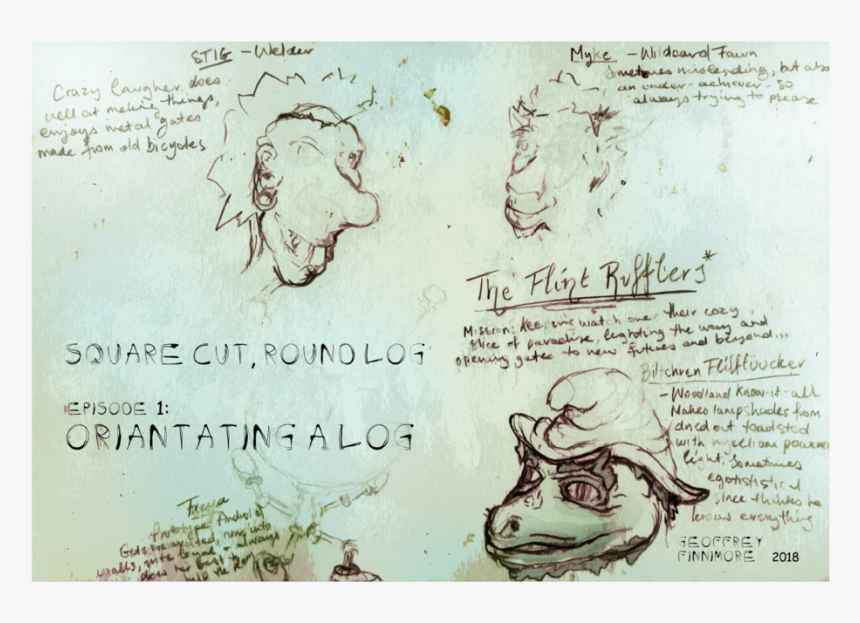 STIG - Welder
Crazy laugher, does
well at making things,
enjoys metal gates
made from old bicycles
Myke - Wildcard Fawn
Sometimes misleading, but also
an under-achiever - so
always trying to please
The Flint Rufflers*
Mission: Keeping watch over their cozy
slice of paradise, lighting the way and
opening gates to new futures and beyond...
SQUARE CUT, ROUND LOG
EPISODE 1:
ORIANTATING A LOG
Bilichren
- Woodland Know-it-all
Makes lampshades from
dried out toadstool
with mycelium powered
light. Sometimes
egotistical
since thinks he
knows everything
Freya
Prototype Android
Gets
walls, quite - always
does her best
GEOFFREY
FINNIMORE 2018